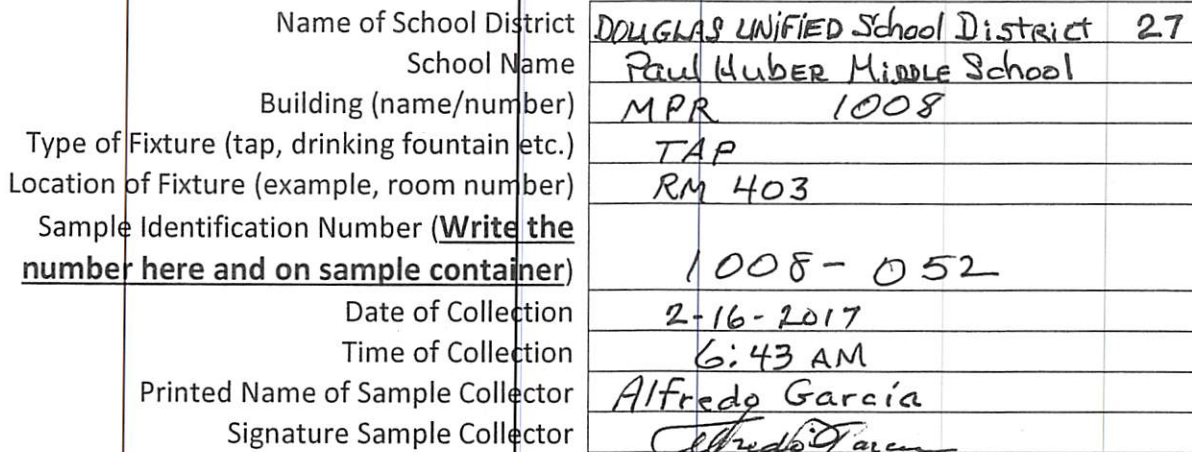 Name of School District DOUGLAS UNIFIED School District 27
School Name Paul HubER MiDDLE School
Building (name/number) MPR 1008
Type of Fixture (tap, drinking fountain etc.) TAP
Location of Fixture (example, room number) RM 403
Sample Identification Number (Write the
number here and on sample container) 1008-052
Date of Collection 2-16-2017
Time of Collection 6:43 AM
Printed Name of Sample Collector Alfredo García
Signature Sample Collector Alfredo Garcia